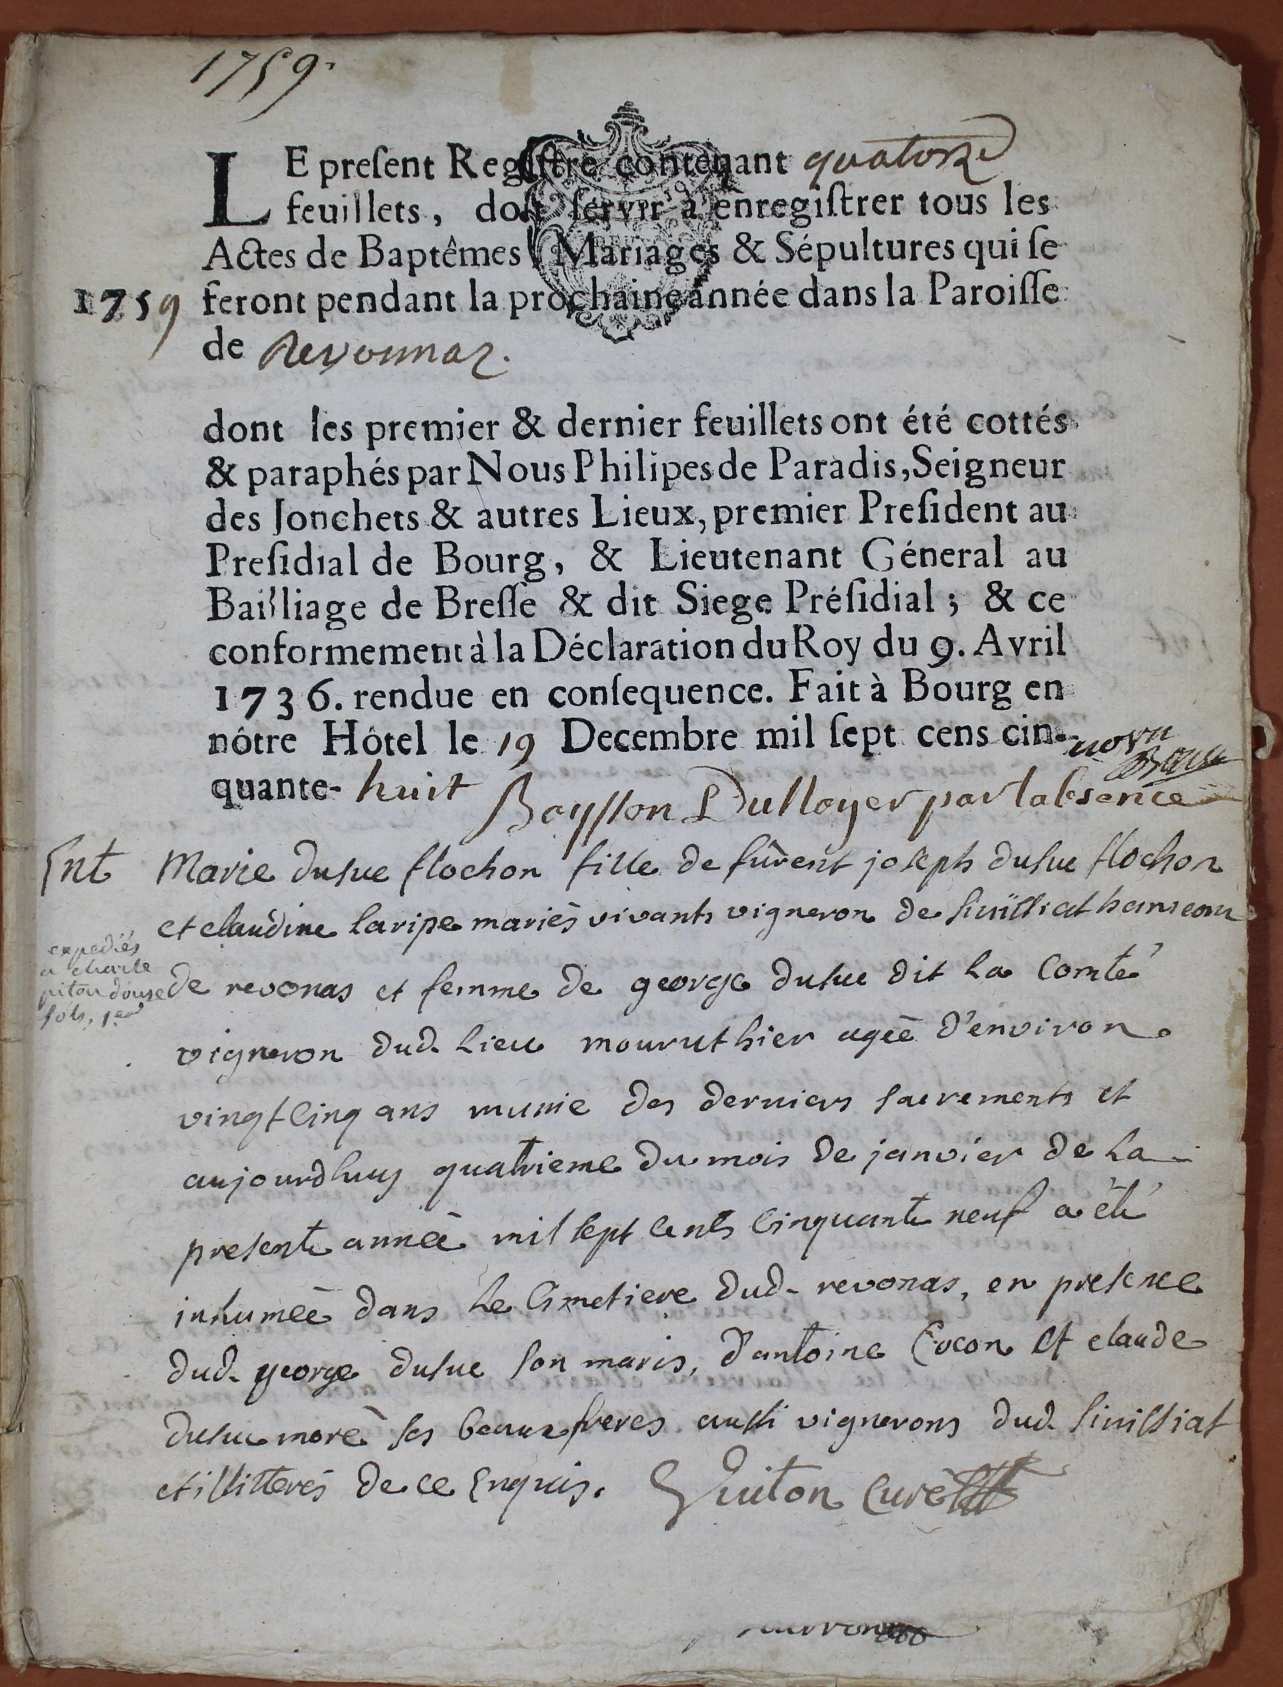 1759.
LE preſent Regiſtre contenant quatorze
feuillets, doit ſervir à enregiſtrer tous les
Actes de Baptêmes, Mariages & Sépultures qui ſe
1759 feront pendant la prochaine année dans la Paroiſſe
de Revonnaz.
dont les premier & dernier feuillets ont été cottés
& paraphés par Nous Philipes de Paradis, Seigneur
des Jonchets & autres Lieux, premier Preſident au
Preſidial de Bourg, & Lieutenant Géneral au
Bailliage de Breſſe & dit Siege Préſidial ; & ce
conformement à la Déclaration du Roy du 9. Avril
1736. rendue en conſequence. Fait à Bourg en
nôtre Hôtel le 19 Decembre mil ſept cens cin-
quante- huit par labsence
Ent Marie dusue flochon fille de furent joseph dusue flochon
et claudine laripe mariés vivants vigneron de hameau
expediés
a charle
piton douse
sols,
de revonas et femme de george dusue dit la Comté
vigneron dud. lieu mourut hier agée d'environ
vingt cinq ans munie des derniers sacrements et
aujourdhuy quatrieme du mois de janvier de la
presente année mil sept cents cinquante neuf a été
inhumée dans le Cimetiere dud. revonas, en presence
dud. george dusue son maris, d'antoine Cocon et claude
dusue moré ses beaux freres aussi vignerons dud.
et illitterés de ce Enquis. Guiton Curé